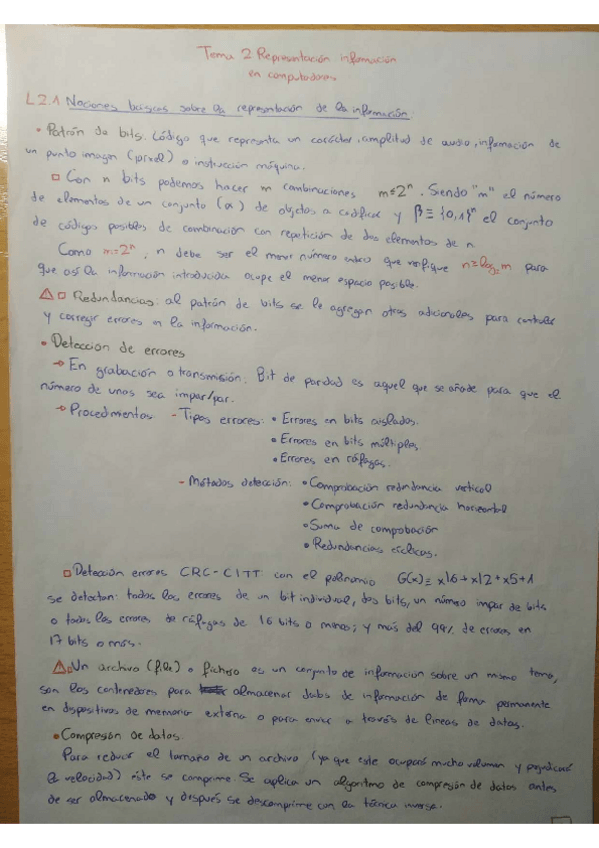 Tema 2 Representación información
en computadores
L2.1 Nociones básicas sobre la representación de la información.
• Patrón de bits. Código que representa un carácter, amplitud de audio, infomación de
un punto imagen (pixel) o instrucción máquina.
□ Con n bits podemos hacer m combinaciones m≤2ⁿ. Siendo "m" el número
de elementos de un conjunto (α) de objetos a codificar y β≡{0,1}ⁿ el conjunto
de códigos posibles de combinación con repetición de dos elementos de n
Como m=2ⁿ, n debe ser el menor número entero que verifique n=log₂m para
que así la información introducida ocupe el menor espacio posible.
⚠ □ Redundancias: al patrón de bits se le agregan otros adicionales para controlar
y corregir errores en la información.
• Detección de errores
→ En grabación o transmisión. Bit de paridad es aquel que se añade para que el
número de unos sea impar/par.
→ Procedimientos - Tipos errores: • Errores en bits aislados.
• Errores en bits múltiples
• Errores en ráfagas.
- Métodos detección: • Comprobación redundancia vertical
• Comprobación redundancia horizontal
• Suma de comprobación
• Redundancias cíclicas.
□ Detección errores CRC-CITT con el polinomio G(x)≡ x16+x12+x5+1
se detectan: todos los errores de un bit individual, dos bits, un número impar de bits
o todos los errores de ráfagas de 16 bits o menos; y más del 99% de errores en
17 bits o más.
⚠ □ Un archivo (file) o fichero es un conjunto de información sobre un mismo tema,
son los contenedores para almacenar datos de información de forma permanente
en dispositivos de memoria externa o para enviar a través de líneas de datos.
• Compresión de datos.
Para reducir el tamaño de un archivo (ya que este ocupará mucho volumen y perjudicará
la velocidad) éste se comprime. Se aplica un algoritmo de compresión de datos antes
de ser almacenado y después se descomprime con la técnica inversa.